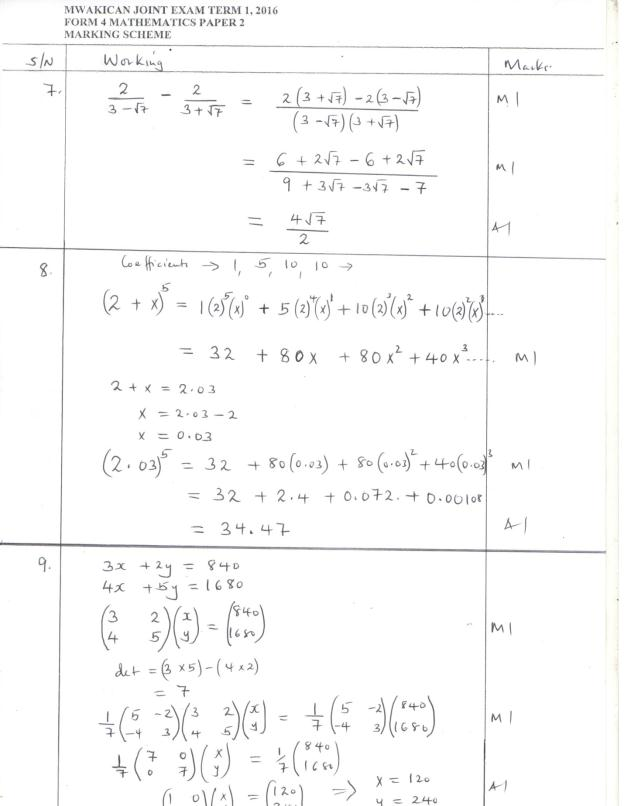 MWAKICAN JOINT EXAM TERM 1, 2016
FORM 4 MATHEMATICS PAPER 2
MARKING SCHEME
S/N Working Marks
7. 2/(3 – √7) – 2/(3 + √7) = (2(3 + √7) – 2(3 – √7))/((3 – √7)(3 + √7)) M1
= (6 + 2√7 – 6 + 2√7)/(9 + 3√7 – 3√7 – 7) M1
= 4√7/2 A1
8. Coefficients → 1, 5, 10, 10 →
(2 + x)⁵ = 1(2)⁵(x)⁰ + 5(2)⁴(x)¹ + 10(2)³(x)² + 10(2)²(x)³ ....
= 32 + 80x + 80x² + 40x³ ..... M1
2 + x = 2.03
x = 2.03 – 2
x = 0.03
(2.03)⁵ = 32 + 80(0.03) + 80(0.03)² + 40(0.03)³ M1
= 32 + 2.4 + 0.072. + 0.00108
= 34.47 A1
9. 3x + 2y = 840
4x + 5y = 1680
(3 2
4 5)(x
y) = (840
1680) M1
det = (3 × 5) – (4 × 2)
= 7
1/7 (5 –2
–4 3)(3 2
4 5)(x
y) = 1/7 (5 –2
–4 3)(840
1680) M1
1/7 (7 0
0 7)(x
y) = 1/7 (840
1680)
(1 0)(x) = (120 => x = 120 A1
y = 240